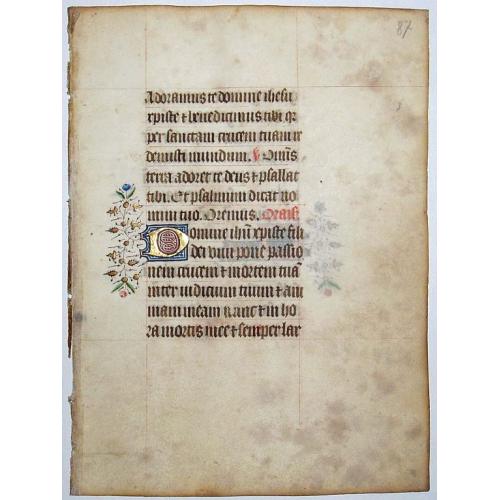 87
Adoramus te domine ihesu
xpiste et benedicimus tibi qr
per sanctam crucem tuam re
demisti mundum. V Omis
terra adoret te deus et psallat
tibi. Et psalmum dicat no
mini tuo. Oremus. Oraiso
Domine ihu xpiste fili
dei vivi pone passio
nem crucem et mortem tua
inter iudicium tuum et ani
mam meam nunc et in ho
ra mortis mee et semper lar